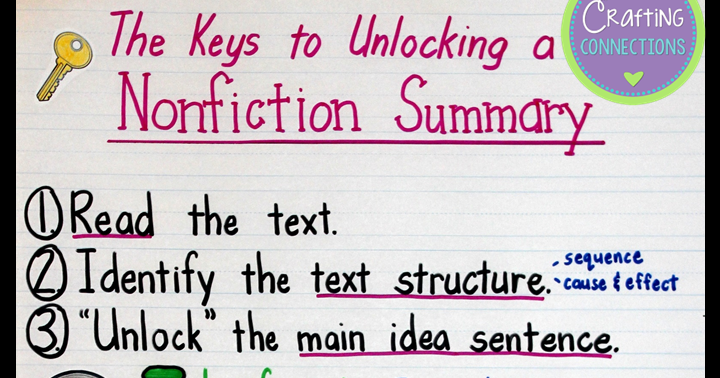 CRAFTING
CONNECTIONS
The Keys to Unlocking a
Nonfiction Summary
1. Read the text.
2. Identify the text structure. · sequence
· cause & effect
3. "Unlock" the main idea sentence.